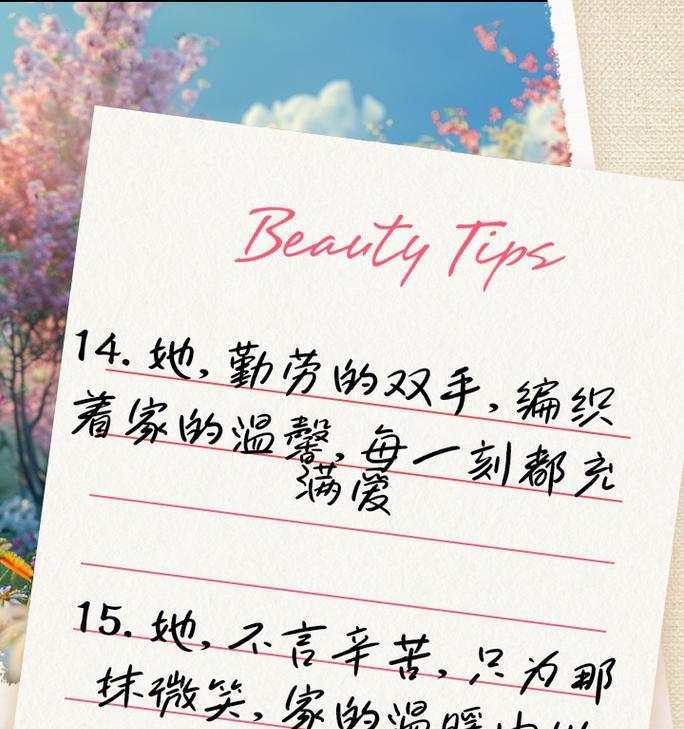 Beauty Tips
14. 她,勤劳的双手,编织
着家的温馨,每一刻都充
满爱
15. 她,不言辛苦,只为那
抹微笑,家的温暖